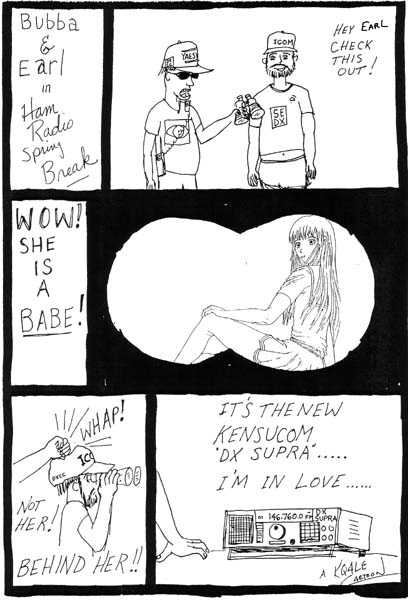 Bubba
&
Earl
in
Ham
Radio
Spring
Break
YAES
ICOM
SE
DX
HEY EARL
CHECK
THIS
OUT!
WOW!
SHE
IS
A
BABE!
WHAP!
ICO
NOT
HER!
BEHIND HER!!
IT'S THE NEW
KENSUCOM
"DX SUPRA".....
I'M IN LOVE......
146.760.0
DX
SUPRA
A KG4LE